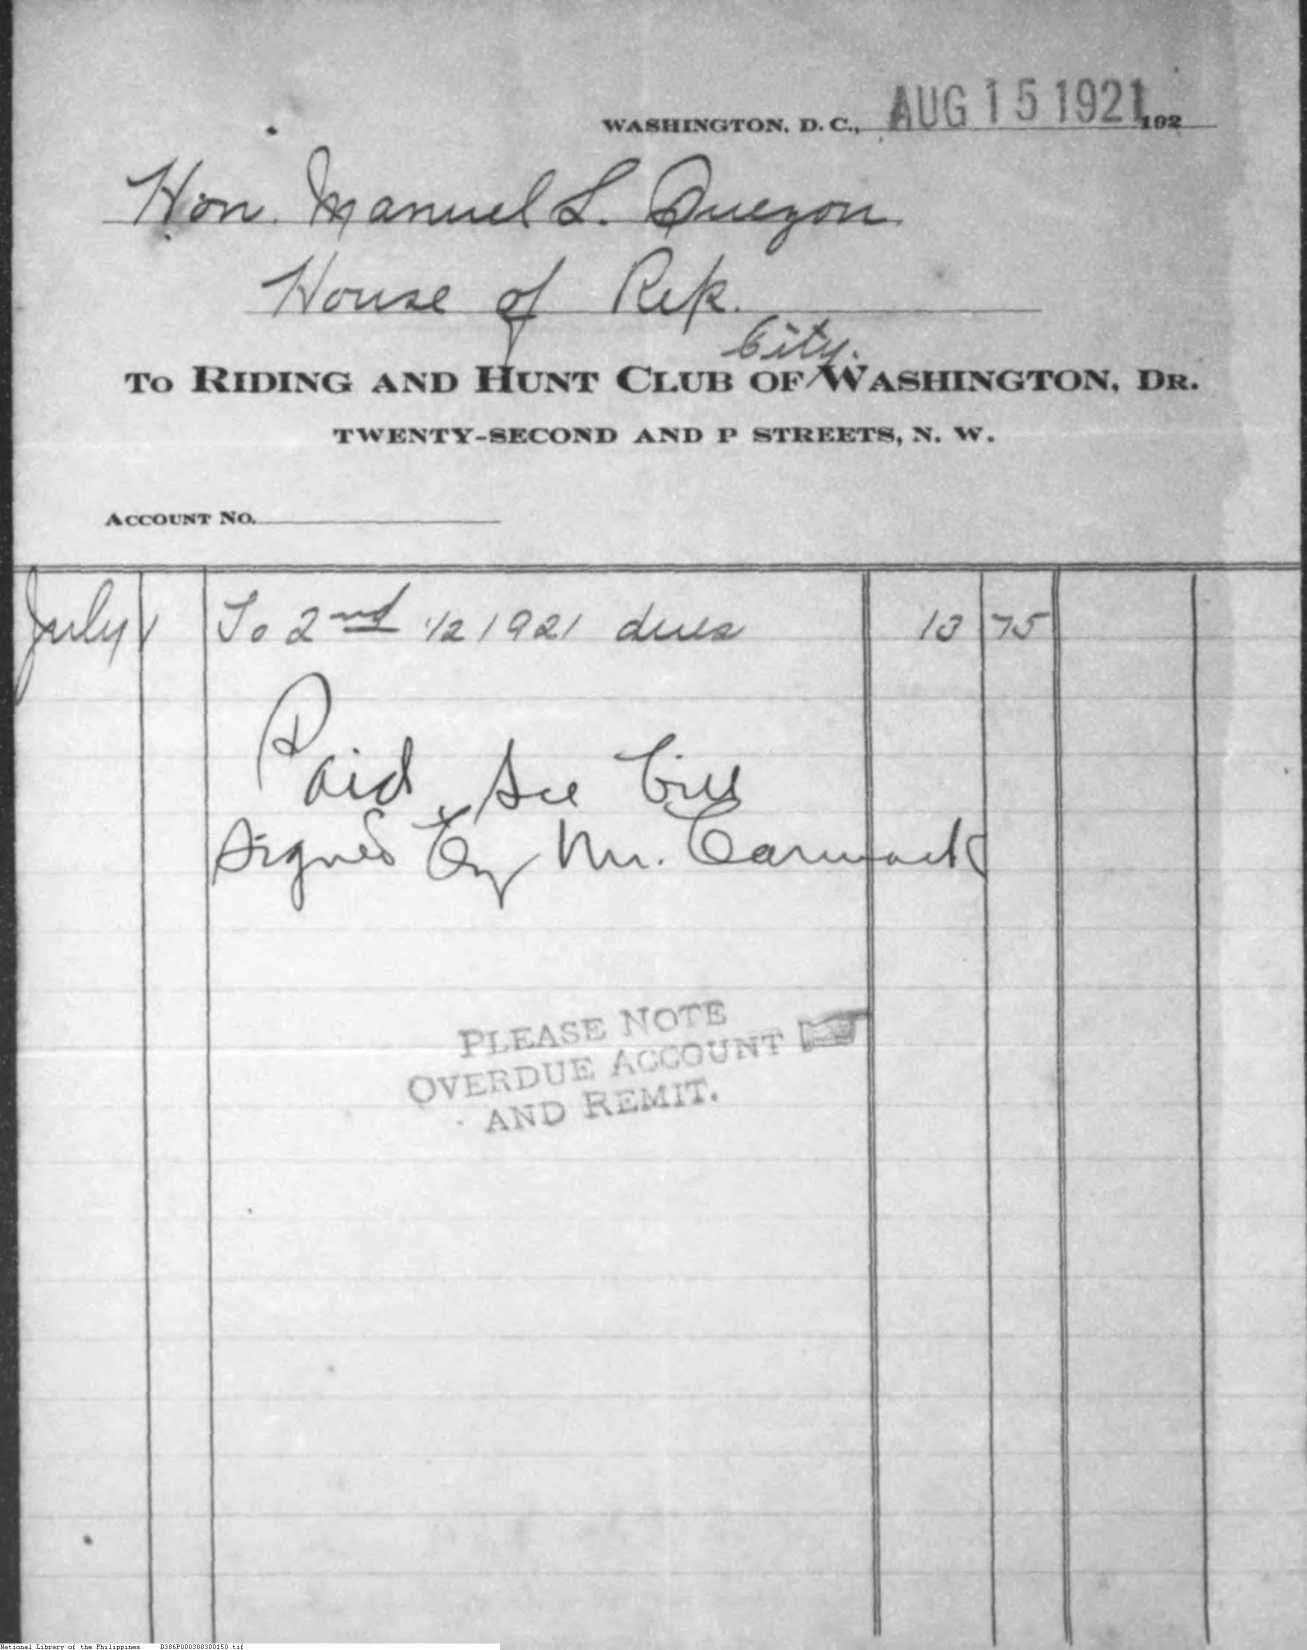 WASHINGTON, D. C., AUG 15 1921 192
Hon. Manuel L. Quezon
House of Rep.
City.
TO RIDING AND HUNT CLUB OF WASHINGTON, DR.
TWENTY-SECOND AND P STREETS, N. W.
ACCOUNT NO.
July 1 To 2nd 1/2 1921 dues 13 75
Paid. See bill
signed by Mr. Carmack
PLEASE NOTE
OVERDUE ACCOUNT
AND REMIT.
National Library of the Philippines D386P000300300150.tif